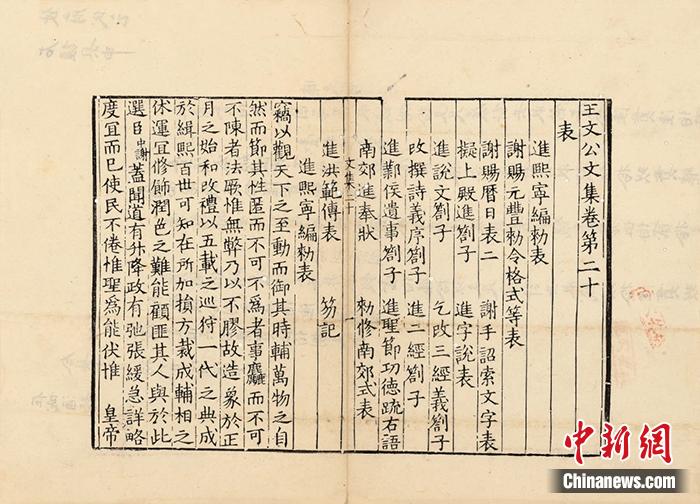 王文公文集卷第二十
表
進熙寧編勑表
謝賜元豐勑令格式等表
謝賜曆日表二 謝手詔索文字表
擬上殿進劄子 進字說表
進說文劄子 乞改三經義劄子
改撰詩義序劄子 進二經劄子
進鄴侯遺事劄子 進聖節功德疏右語
南郊進奉狀 勑修南郊式表
文集二十 一
進洪範傳表 笏記
進熙寧編勑表
竊以觀天下之至動而御其時輔萬物之自
然而節其性匿而不可不爲者事麤而不可
不陳者法厥惟無弊乃以不膠故造象於正
月之始和改禮以五載之巡狩一代之典成
於緝熙百世可知在所加損方裁成輔相之
休運宜修飾潤色之難能顧匪其人與於此
選臣中謝蓋聞道有升降政有弛張緩急詳略
度宜而已使民不倦惟聖爲能伏惟 皇帝
中新网
Chinanews.com